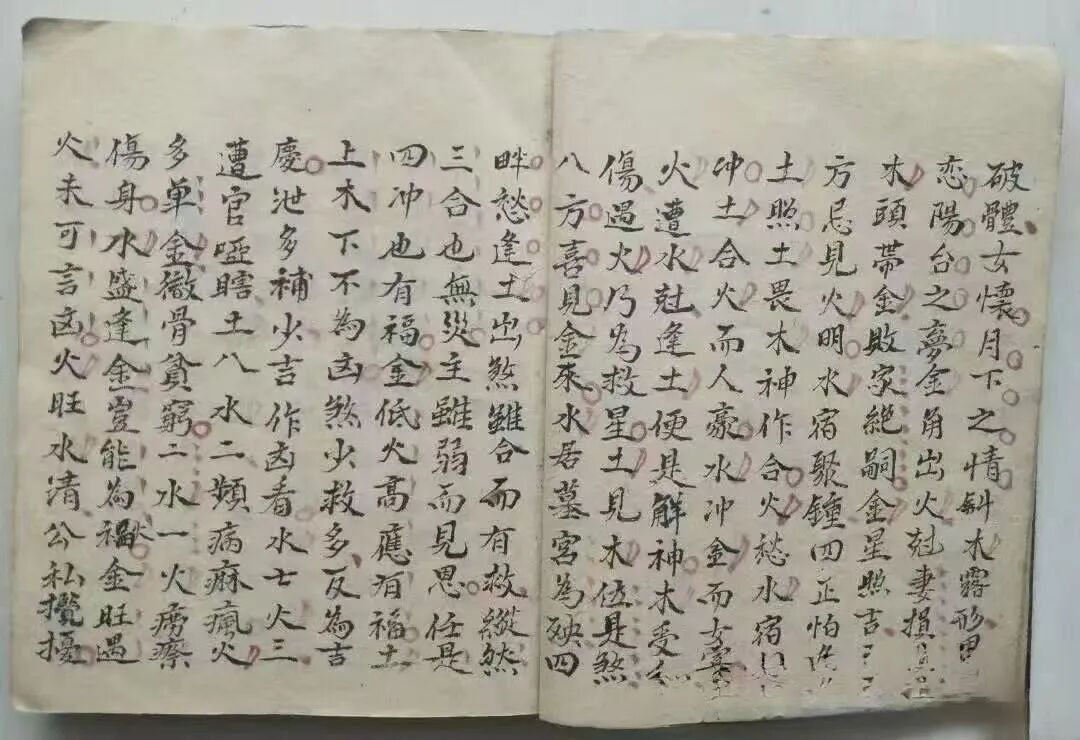 破體女懷月下之情斜木露形男
恋陽台之夢金角出火尅妻損
木頭帶金敗家絕嗣金星照吉
方忌見火明水宿聚鍾四正怕
土照土畏木神作合火愁水宿
冲土合火而人豪水冲金而女寡
火遭水尅逢土便是解神木受
傷遇火乃為救星土見木伍是煞
八方喜見金来水居墓宮為殃四
畔愁逢土出煞雖合而有救縱然
三合也無災主雖弱而見恩任是
四冲也有福金低火高應有福土
上木下不為凶煞少救多反為吉
慶泄多補少吉作凶看水七火三
遭官啞瞎土八水二頻病痳瘋火
多単金微骨貧窮二水一火癆瘵
傷身水盛逢金豈能為福金旺遇
火未可言凶火旺水清公私攪擾